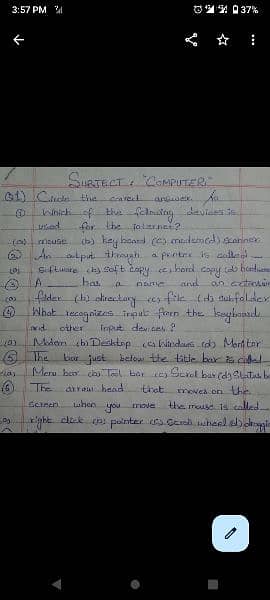 3:57 PM
37%
SUBJECT : "COMPUTER"
Q1) Circle the correct answer.
① Which of the following devices is
used for the internet?
(a) mouse (b) keyboard (c) modem (d) scanner
② An output through a printer is called
(a) Software (b) soft copy (c) hard copy (d) hardware
③ A ______ has a name and an extension
(a) folder (b) directory (c) file (d) subfolder
④ What recognizes input from the keyboard
and other input devices ?
(a) Modem (b) Desktop (c) Windows (d) Monitor
⑤ The bar just below the title bar is called
(a) Menu bar (b) Tool bar (c) Scroll bar (d) Status b
⑥ The arrow head that moves on the
screen when you move the mouse is called
a) right click (b) pointer (c) Scroll wheel (d) draggin